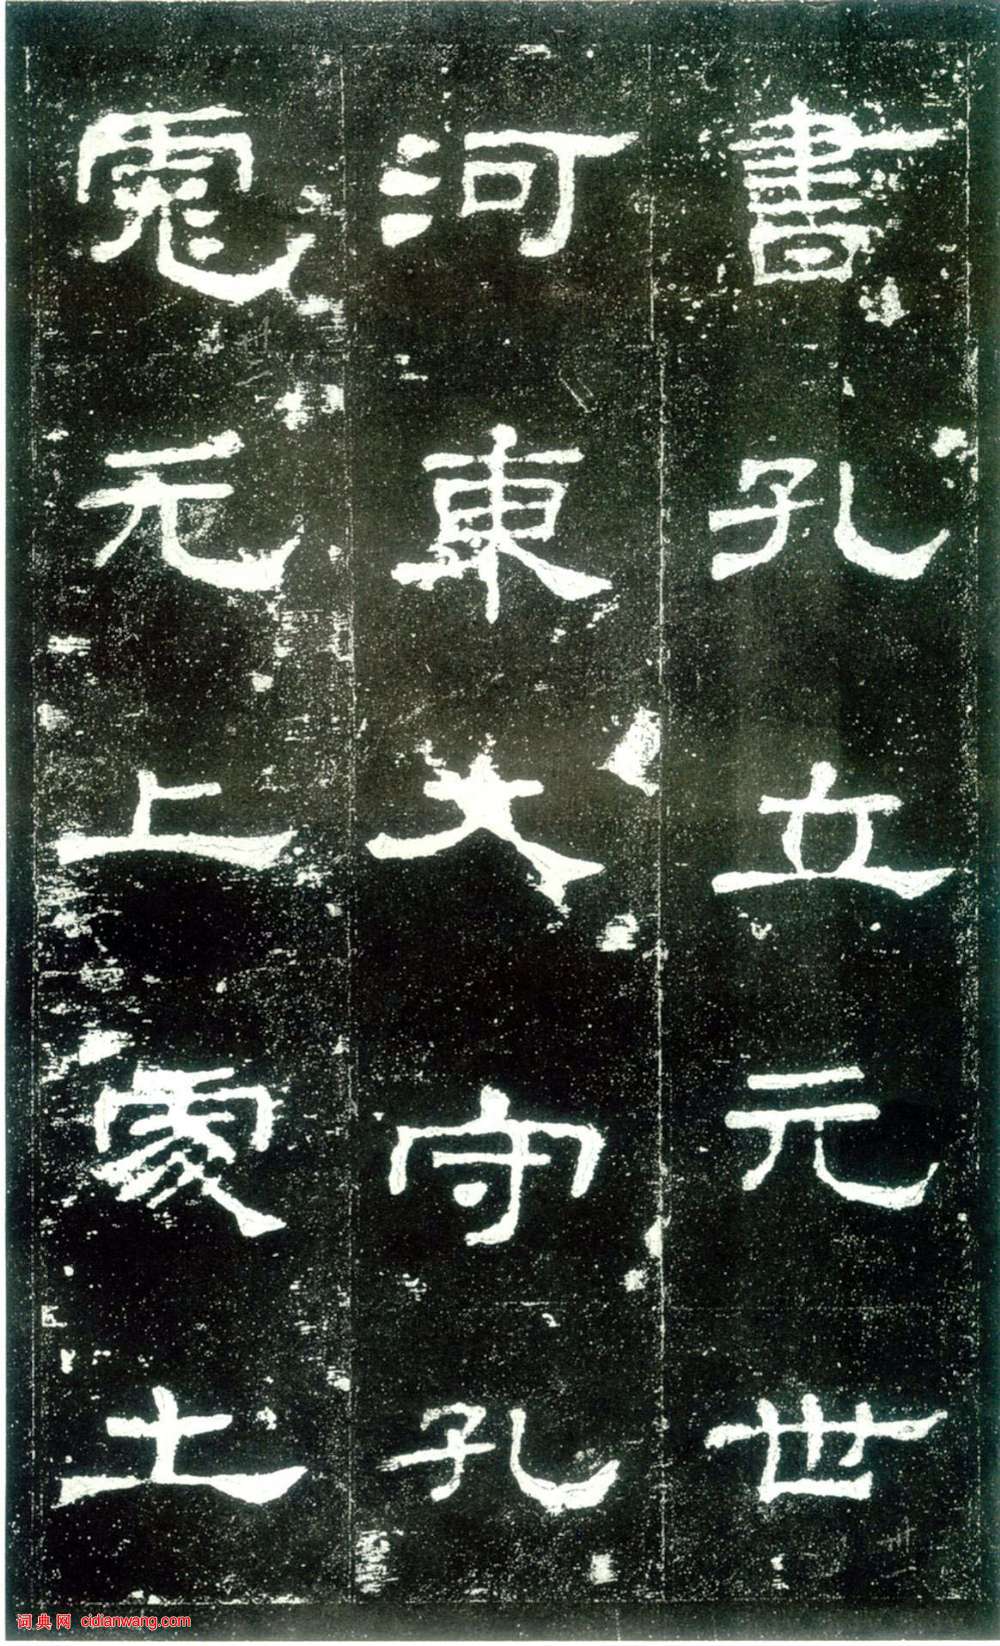 書孔立元世
河東大守孔
彪元上處士
词典网 cidianwang.com